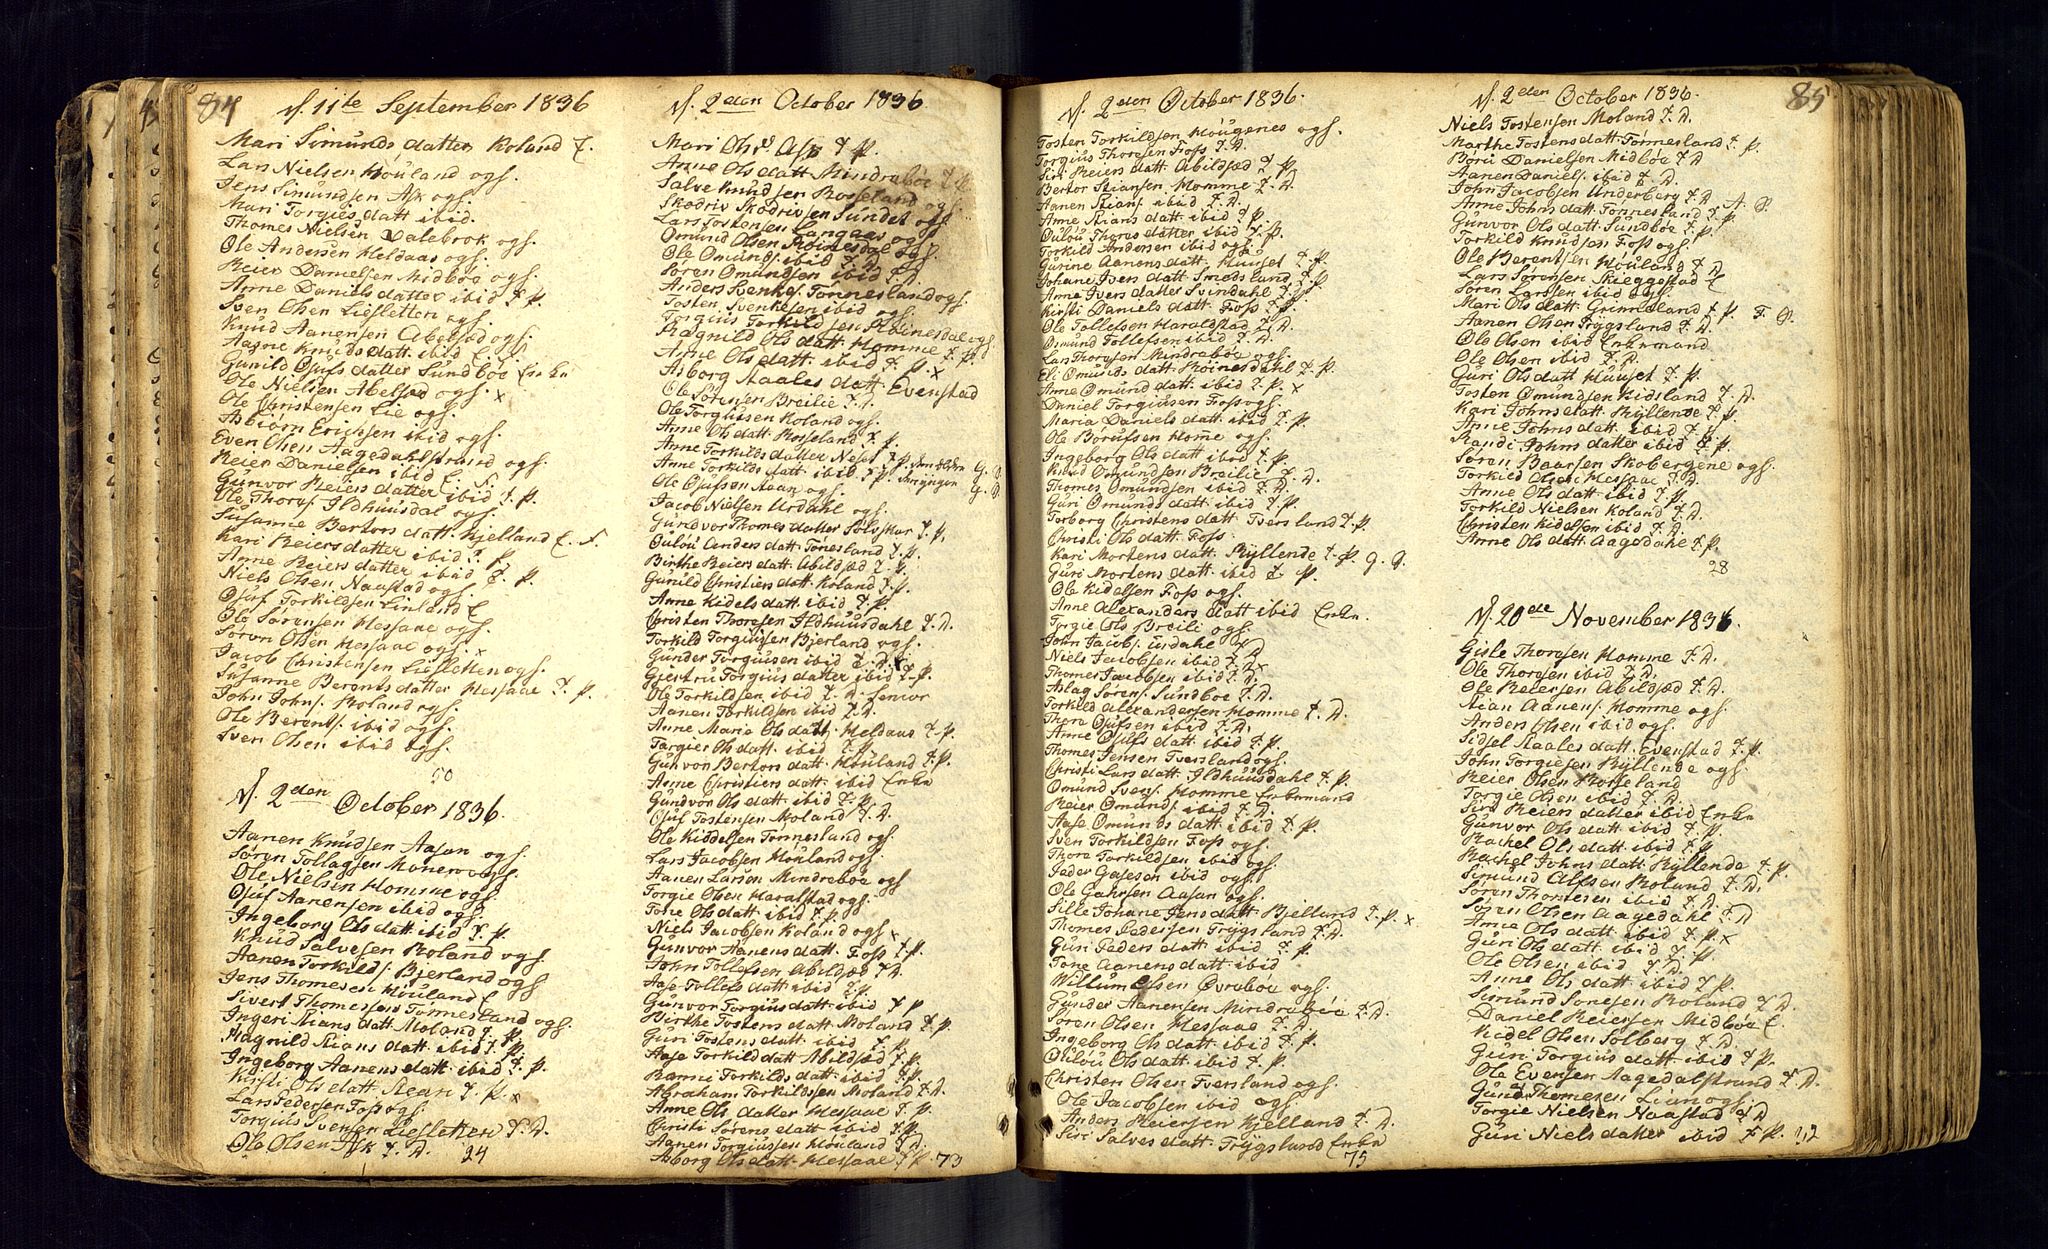 84
d. 11te September 1836
Mari Simunds datter Roland E.
Lars Nielsen Houland ogs.
Jens Simundsen Ask ogs.
Mari Torgies datt ibid.
Thomes Nielsen Dalebrok ogs.
Ole Andersen Heldaas ogs.
Reier Danielsen Midbøe ogs.
Anne Daniels datter ibid T. P.
Sven Olsen Liesletten ogs.
Knud Aanensen Abelsæd ogs.
Aasne Knuds datt. ibid E.
Gunild Ojufs datter Sundbøe Enke
Ole Nielsen Abelsæd ogs. x
Ole Christensen Lie ogs.
Asbiørn Erichsen ibid ogs.
Even Olsen Aagedahlstrand ogs.
Reier Danielsen ibid E. S.
Gunvor Reiers datter ibid T. P.
Ole Thores. Ildhuusdal ogs.
Susanne Bertors datt. Kjelland E. S.
Kari Reiers datter ibid T. P.
Anne Reiers datter ibid T. P.
Niels Olsen Naastad ogs.
Ojuf Torkildsen Linland E
Ole Sørensen Messaae ogs.
Søren Olsen Messaae ogs. x
Jacob Christensen Liesletten ogs.
Susanne Berents datter Messaae T. P.
John Johns. Roland ogs.
Ole Berents. ibid ogs.
Sven Olsen ibid ogs.
50
d. 2den October 1836.
Aanen Knudsen Aasen ogs.
Søren Tollagsen Moner ogs.
Ole Nielsen Homme ogs.
Ojuf Aanensen ibid ogs.
Ingeborg Ols datt. ibid T. P.
Knud Salvesen Roland ogs
Aanen Torkilds. Bjerland ogs
Jens Thomesen Houland E
Sivert Thomessen Tonnesland ogs.
Ingeri Stians datt. Moland T. P.
Magnild Stians datt. ibid T. P.
Ingeborg Aanens datt. ibid T. P.
Kirsti Ols datt. Steari T. P. x
Lars Pedersen Foss ogs.
Torgius Svensen Liesletten T. D.
Ole Olsen Ask T. D. 24
d. 2den October 1836.
Mari Ols d Ask T P.
Anne Ols datt Mindrebøe T. P.
Salve Knudsen Rosseland ogs.
Skodriv Skodrivsen Sundet ogs.
Lars Tostensen Langaas ogs
Omund Olsen Roinesdal ogs.
Ole Omunds. ibid T. D.
Søren Omundsen ibid T. D.
Anders Svenkes. Tonnesland ogs.
Tosten Svenkesen ibid ogs.
Torgius Torkildsen Roinesdal ogs
Magnild Ols datt. Homme T. P.
Anne Ols datt. ibid T. P. x
Asborg Staales datt. Evenstad
Ole Sørensen Breilie T. D.
Ole Torgiusen Roland ogs.
Anne Ols datt. Rosseland T. P.
Anne Torkilds datter Neset T. P. den Eldre G. G.
Anne Torkilds datt. ibid T. P. den yngre G. G.
Ole Ojufsen Aaen ogs.
Jacob Nielsen Urdahl ogs.
Gundvor Thomes datter Sølvskar T. P.
Oulou Anders datt. Tonnesland T. P.
Birthe Reiers datt. Abildsæd T. P.
Gunild Christiers datt. Roland T. P.
Anne Kidels datt. ibid T. P.
Christen Thoresen Ildhuusdahl T. D.
Torkild Torgiussen Bjerland ogs.
Gunder Torgiusen ibid T. D. x
Gjertru Torgius datter ibid T. P.
Ole Torkildsen ibid T. D. Senior
Aanen Torkildsen ibid T. D.
Anne Maria Ols datt. Heldaas T. P.
Targier Ols datt. ibid T. P.
Gunvor Bertors datt. Houland T. P.
Anne Christiers datt. ibid Enke
Gundvor Ols datt. ibid T. P.
Ojuf Tostensen Moland T. D.
Ole Kiddelsen Tonnesland ogs.
Lars Jacobsen Houland ogs.
Aanen Larsen Mindrebøe ogs
Torgie Olsen Haralstad ogs.
Tone Ols datt. ibid T. P.
Niels Jacobsen Roland ogs x
Gunvor Aanens datt. Foss T. P.
John Tollefsen Abildsæd T. D.
Aase Tollefs datt. ibid T. P
Gunvor Torgius datt. ibid T P
Birthe Tostens datt. Moland T. P.
Guri Tostens datt. ibid T. P.
Aase Torkild datt. Abildsæd T. P.
Rønni Torkilds datt. ibid T. P.
Abraham Torkildsen Moland T. D.
Anne Ols datter Messaae T. P.
Christi Sørens datt. ibid T. P.
Aanen Torgiussen Houland T. D.
Asborg Ols datt. Messaae T. P. 73
d. 2den October 1836.
Tosten Torkildsen Hougenes ogs.
Torgius Thoresen Foss T. D.
Siri Reiers datt. Abildsæd T. P.
Bertor Stiansen Homme T. D.
Aanen Stians. ibid T. D.
Anne Stians datt. ibid T. P.
Oulou Thores datter ibid T. P.
Torkild Andersen ibid ogs.
Gurine Aanens datt. Huuset T. P.
Johane Ivers datt. Smedsland T. P.
Anne Ivers datter Svindahl T. P.
Kirsti Daniels datt. Foss T. P.
Ole Tollefsen Haraldstad T. D.
Osmund Tollefsen ibid T. D.
Lars Thorgsen Mindrebøe ogs.
Eli Omunds datt. Roinesdahl T. P.
Anne Omund datt. ibid T. P. x
Daniel Torgiusen Foss ogs.
Maria Daniels datt. ibid T. P.
Ole Borufsen Home ogs.
Ingeborg Ols datt. ibid T. P.
Knud Omundsen Breilie T. D.
Thomes Omundsen ibid T. D.
Guri Omunds datt. ibid T. P.
Torborg Christens datt. Tversland T. P.
Christi Ols datt. Foss
Kari Mortens datt. Ryllende T. P. G. G.
Guri Mortens datt. ibid T. P.
Ole Kidelsen Foss ogs.
Anne Alexanders datt ibid Enke.
Torgie Ols Breili ogs.
John Jacobs. Urdahl T. D
Niels Jacobsen ibid T. D. x
Thomes Jacobsen ibid T. D.
Aslag Sørens. Sundbøe T. D.
Torkild Alexandersen Homme T. D.
Thore Ojufsen ibid T. D.
Anne Ojufs datt ibid T. P.
Thomes Jensen Tversland ogs.
Christi Lars datt. Ildhuusdahl T. P.
Omund Svens. Homme Enkemand
Reier Omunds. ibid T. D.
Aase Omunds datt. ibid T. P.
Sven Torkildsen Foss ogs.
Thore Torkildsen ibid ogs
Peder Gasesen ibid ogs.
Ole Gahrsen Aasen ogs.
Sille Johane Jens datt. Bjelland T. P. x
Thomes Pedersen Trygsland T. D.
Guri Peders datt. ibid T. P.
Tone Aanens datt. ibid
Willum Olsen Øvrebøe ogs.
Gunder Aanensen Mindrebøe T. D.
Søren Olsen Messaae T. D.
Ingeborg Ols datt. ibid T. P.
Oulou Ols datt. ibid T. P.
Christen Olsen Tversland ogs.
Ole Jacobsen ibid ogs.
Anders Reiersen Kjelland T. D.
Siri Salves datt. Trygsland Enke
75
85
d. 2den October 1836.
Niels Tostensen Moland T. D.
Marthe Tostens datt. Tonnesland T. P.
Børu Danielsen Midbøe T. D
Aanen Daniels. ibid T. D.
John Jacobsen Underberg T. D. A. P.
Anne Johns datt. Tonnesland T. P.
Gunvor Ols datt. Sundbøe T. P.
Torkild Knudsen Foss ogs.
Ole Berentsen Houland T. D
Lars Sørensen Skieggestad E
Søren Larssen ibid ogs.
Mari Ols datt. Grimeland T. P. T. P.
Aanen Olsen Trygsland T. D.
Ole Olsen ibid Enkemand
Ole Olsen ibid T. D.
Guri Ols datt Huuset T. P.
Tosten Omundsen Kidsland T. D.
Kari Johns datt. Ryllende T. P.
Anne Johns datt. ibid T. P.
Randi Johns datter ibid T. P.
Søren Baarsen Skobergene ogs.
Torkild Olsen Messaae T. D.
Anne Ols datt. ibid T. P
Torkild Nielsen Roland T. D.
Christen Kidelsen ibid T. D.
Anne Ols datt. Aagedahl T. P.
28
d. 20de November 1836.
Gisle Thoresen Homme T. D.
Ole Thoresen ibid T. D.
Ole Reiersen Abildsæd T. D.
Stian Aanens. Homme ogs.
Anders Olsen ibid ogs.
Sidsel Staales datt. Evenstad T. P.
John Torgiesen Ryllende ogs.
Reier Olsen Rosseland
Torgie Olsen ibid T. D.
Siri Reiers datter ibid Enke
Gunvor Ols datt. ibid T. P.
Rachel Ols datt. ibid T. P
Rachel Johns datt. Ryllende T. P.
Simund Alfsen Roland T. D.
Søren Thorstesen ibid T. D.
Søren Olsen Aagedahl T. D
Anne Ols datt. ibid T. P. x
Guri Ols datt. ibid T. P.
Ole Olsen ibid T. D.
Anne Ols datt. ibid T. P.
Simund Sonesen Roland T. D.
Daniel Reiersen Midbøe E.
Kidel Olsen Solberg T. D.
Guri Torgius datt ibid T. P.
Ole Evensen Aagedalstrand T. D.
Gund Thomesen Lian ogs.
Torgie Nielsen Naastad T. D
Guri Niels datter ibid T. P. 22